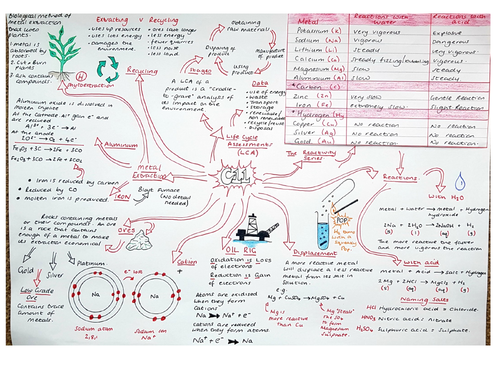 Biological method of
metal extraction
that uses
plants
1 metal is
absorbed by
plant.
2 Cut & Burn
Plants
3 Ash contains
compounds.
Phytoextraction
Extracting v Recycling
Uses up resources
Uses energy
damages the
environment.
Ores last longer
Less energy
Fewer quarries
Less noise
Less
Recycling
Obtaining
Raw materials
Disposing of
product
Manufacture of
product
Using
product
Stages
A LCA of a
Product is a "Cradle
to grave" analysis of
its impact on the
environment
Data
Use of energy
Waste
Transport
Storage
Renewable/
Non renewable
Recycle/reuse
Disposal
Life Cycle
Assessments
(LCA)
Metal
Reactions with
water
Reactions with
acid
Potassium (K)
Very vigorous
Explosive
Sodium (Na)
Vigorous
Dangerous
Lithium (Li)
Steady
Very vigorous
Calcium (Ca)
Steady fizzing/foaming
Vigorous
Magnesium (Mg)
Slow
Steady
Aluminium (Al)
Slow
Steady
Carbon (C)
Zinc (Zn)
Very slow
Gentle Reaction
Iron (Fe)
Extremely slow
Slight Reaction
Hydrogen (H)
Copper (Cu)
No reaction
No reaction
Silver (Ag)
No reaction
No reaction
Gold (Au)
No reaction
No reaction
The
Reactivity
Series
Aluminium oxide is dissolved in
At the Cathode
Al³⁺ + 3e⁻ → Al
At the anode
Aluminium
Fe₂O₃ + 3C
Fe₂O₃ + 3CO
Metal
Extraction
Iron is reduced by carbon
Reduced by CO
Molten iron is produced.
IRON
Blast Furnace
ORES
Rocks containing metal
or their compounds. An ore
is a rock that contains
enough of a metal to make
its extraction economical
Gold
Silver
Platinum
Low Grade
Ore
Contains trace
amount of
metals.
Na
Na
Sodium atom
2.8.1
Sodium ion
Na⁺
Cation
OIL RIG
Oxidation is Loss
of electrons
Reduction is Gain
of electrons
Atoms are oxidised
when they form
cations
Na → Na⁺ + e⁻
Cations are reduced
when they form atoms
Na⁺ + e⁻ → Na
Displacement
A more reactive metal
will displace a less reactive
metal from its salt in
solution
e.g
Mg + CuSO₄ → MgSO₄ + Cu
Mg is
more reactive
than Cu
POP
Reactions
with H₂O
Metal + Water → Metal + Hydrogen
hydroxide
2Na + 2H₂O → 2NaOH + H₂
(s) (l) (aq) (g)
The more reactive the faster
and more vigorous the reaction
with acid
Metal + Acid → Salt + Hydrogen
Mg + 2HCl → MgCl₂ + H₂
(s) (aq) (aq) (g)
Naming Salts
HCl Hydrochloric acid = Chloride.
HNO₃ Nitric acid = Nitrate
H₂SO₄ Sulphuric acid = Sulphate.